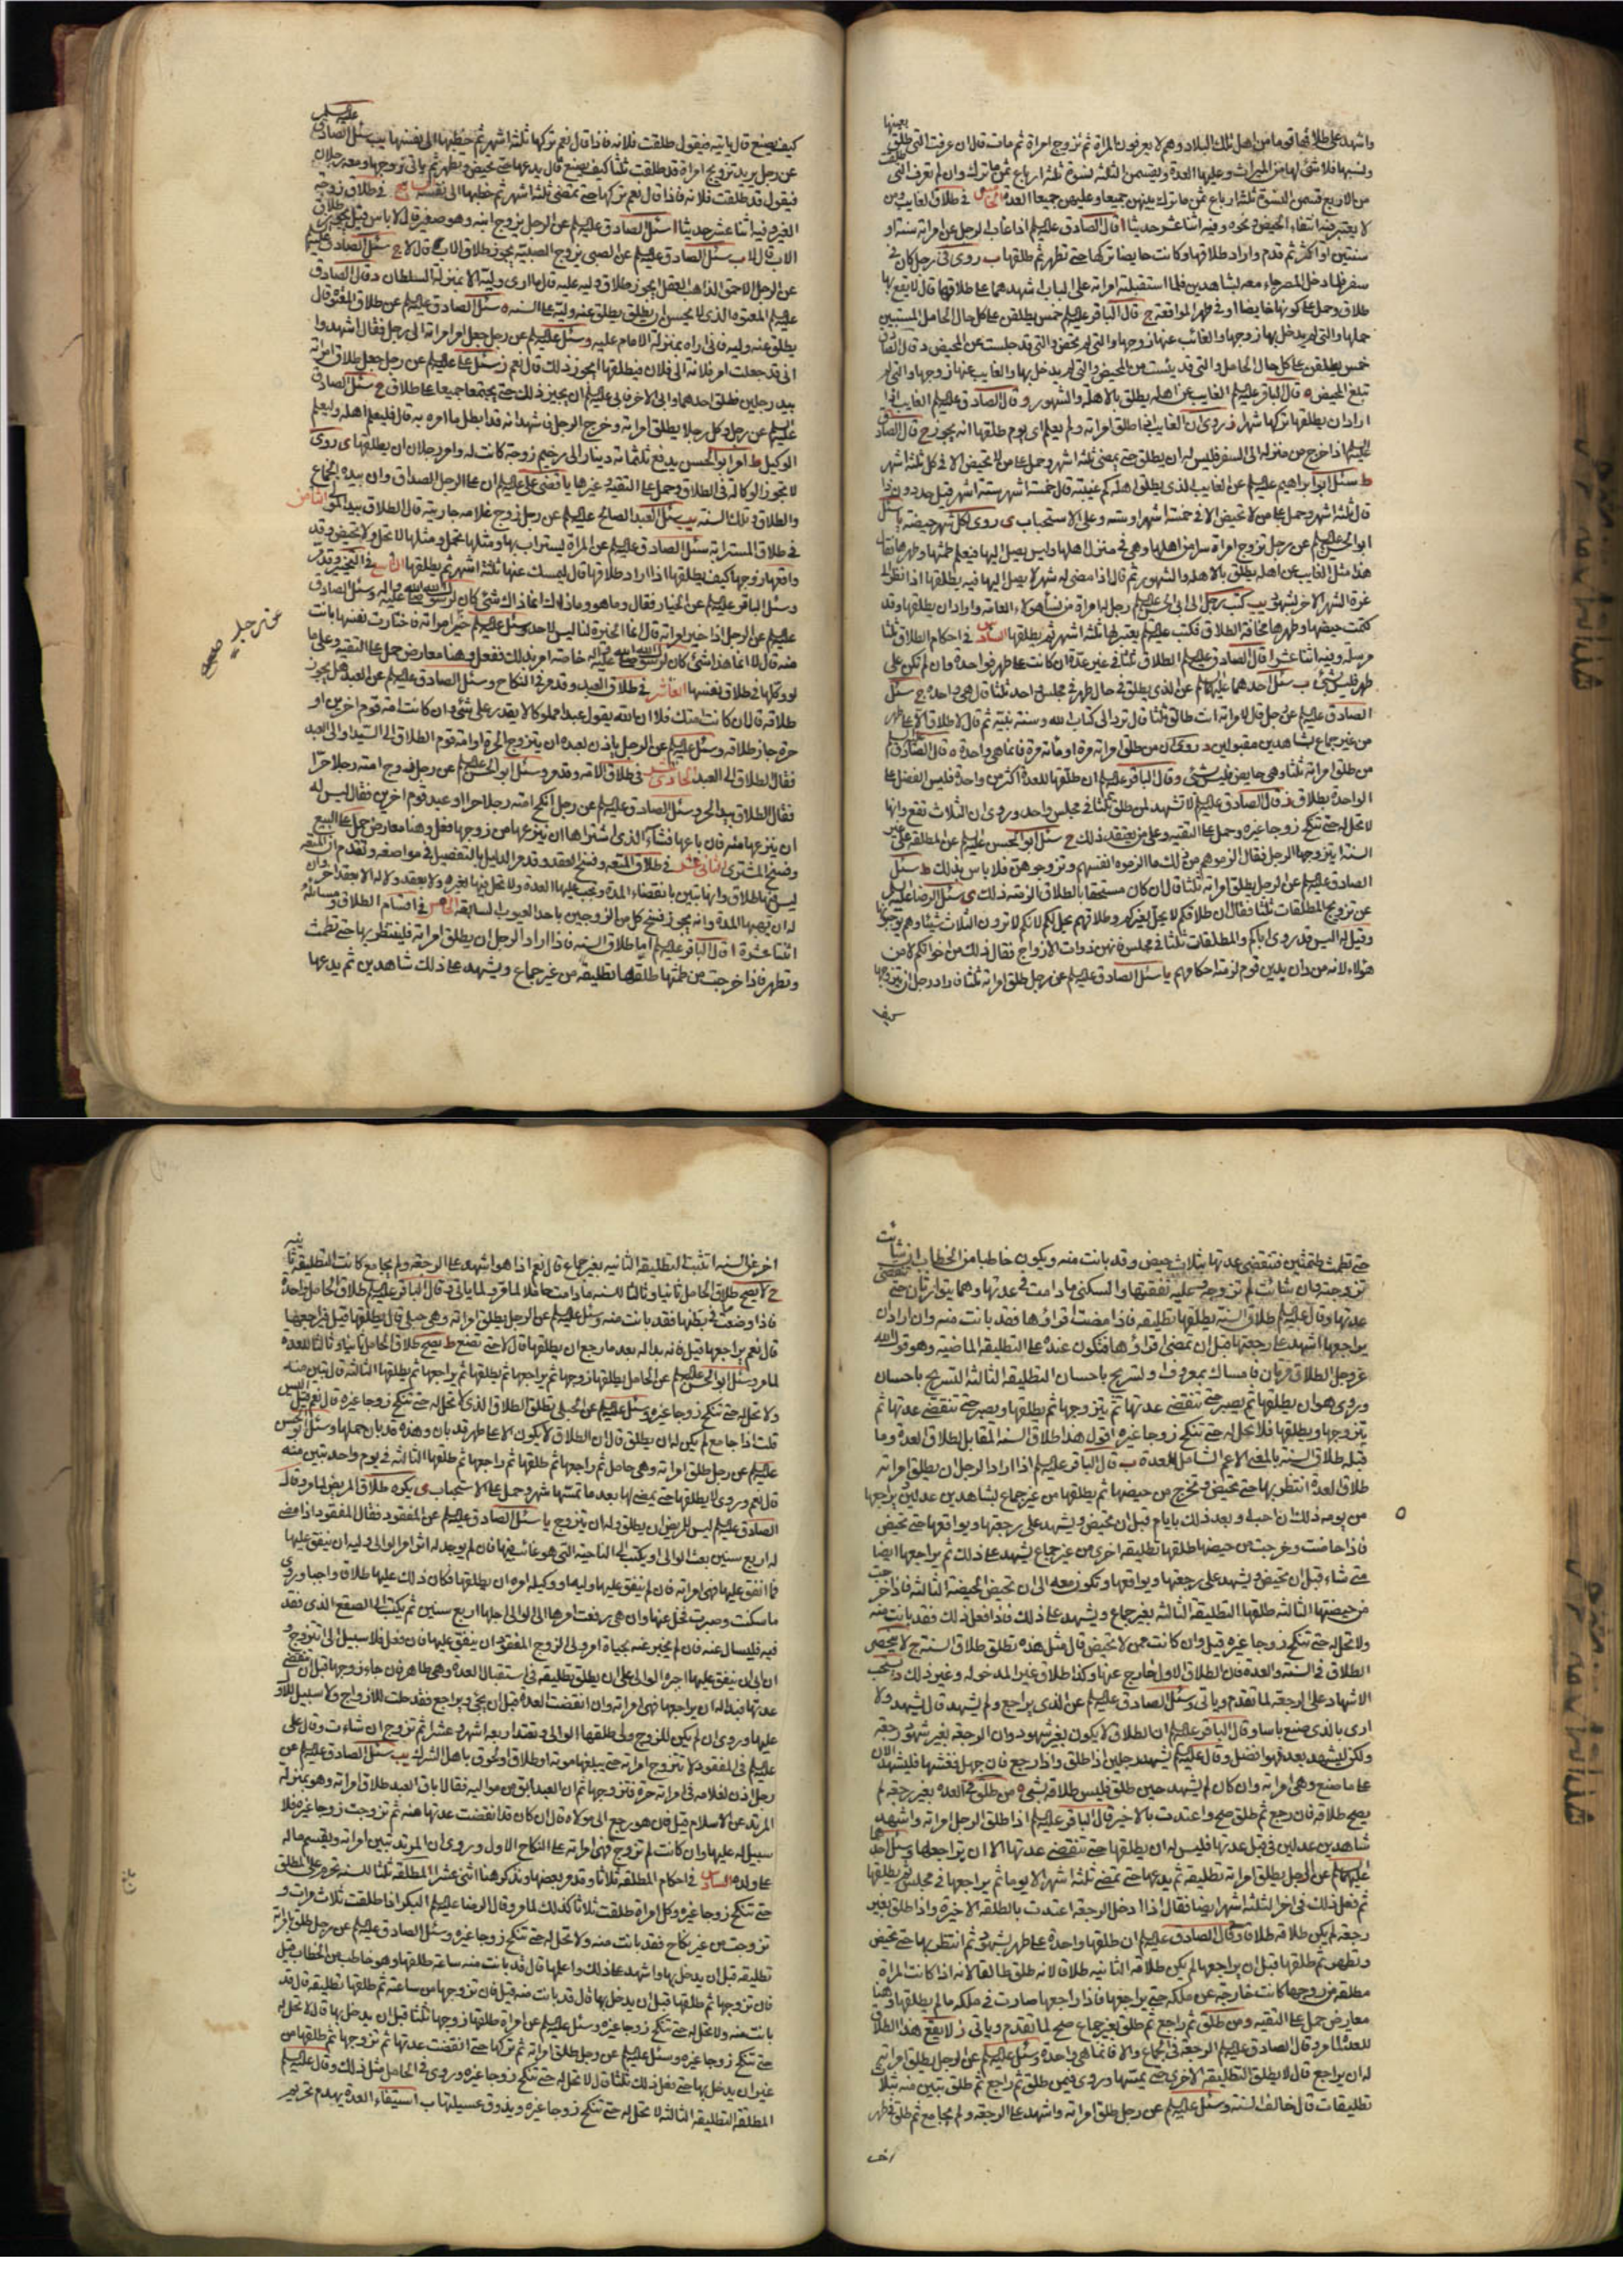 واشهد على طلاقها قوما من اهل تلك البلاد وهم لا يعرفون المراة ثم تزوج امراة ثم مات قال ان عرفت التى طلق بعينها
ونسبها فلا شئ لها من الميراث وعليها العدة ويقسمن الثلثة نسوة ثلثة ارباع ثمن ما ترك وان لم تعرف التى طلقت
من الاربع قسمن النسوة ثلثة ارباع ثمن ما ترك بينهن جميعا وعليهن جميعا العدة الخامس في طلاق الغايب ومن
لا يعتبر فيه انتفاء الحيض ونحوه وفيه اثنا عشر حديثا ا قال الصادق عليه السلم اذا غاب الرجل عن امراته سنة او
سنتين او اكثر ثم قدم واراد طلاقها وكانت حايضا تركها حتى تطهر ثم طلقها ب روى في رجل كان في
سفر فلما دخل المصر جاء معه بشاهدين فلما استقبلته امراته على الباب اشهدهما على طلاقها قال لا يقع بها
طلاق وحمل على كونها حايضا او في طهر المواقعة ج قال الباقر عليه السلم خمس يطلقن على كل حال الحامل المستبين
حملها والتى لم يدخل بها زوجها والغائب عنها زوجها والتى لم تحض والتى قد جلست عن المحيض د قال الصادق
خمس يطلقن على كل حال الحامل والتى قد يئست من المحيض والتى لم يدخل بها والغايب عنها زوجها والتى لم
تبلغ المحيض ه قال الباقر عليه السلم الغايب عن اهله يطلق بالاهلة والشهور و قال الصادق عليه السلم الغايب اذا
اراد ان يطلقها تركها شهرا ز روى ان الغايب اذا طلق امراته ولم يعلم اى يوم طلقها انه يجوز ح قال الصادق
عليه السلم اذا خرج من منزله الى السفر فليس له ان يطلق حتى يمضى ثلثة اشهر وحمل على من لا تحيض الا في كل ثلثة اشهر
ط سئل ابو ابراهيم عليه السلم عن الغايب الذى يطلق اهله كم غيبته قال خمسة اشهر ستة اشهر قيل حد دون ذا
قال ثلثة اشهر وحمل على من لا تحيض الا في خمسة اشهر او ستة وعلى الاستحباب ى روى لكل شهر حيضة يا سئل
ابو الحسن عليه السلم عن رجل تزوج امراة سرا من اهلها وهى في منزل اهلها وليس يصل اليها فيعلم طمثها وطهرها فقال
هذا مثل الغايب عن اهله يطلق بالاهلة والشهور ثم قال اذا مضى له شهر لا يصل اليها فيه يطلقها اذا نظر الى
غرة الشهر الاخر بشهود يب كتب رجل الى ابى الحسن عليه السلم رجل له امراة من نساء هؤلاء العامة واراد ان يطلقها وقد
كتمت حيضها وطهرها مخافة الطلاق فكتب عليه السلم يعتزلها ثلثة اشهر ثم يطلقها السادس في احكام الطلاق ثلثا
مرسلة وفيه اثنا عشر ا قال الصادق عليه السلم الطلاق ثلثا في غير عدة ان كانت على طهر فواحدة وان لم تكن على
طهر فليس بشئ ب سئل احدهما عليهما السلم عن الذى يطلق في حال طهر في مجلس واحد ثلثا قال هى واحدة ج سئل
الصادق عليه السلم عن رجل قال لامراته انت طالق ثلثا قال ترد الى كتاب الله وسنة نبيه ثم قال لا طلاق الا على طهر
من غير جماع بشاهدين مقبولين د روى ان من طلق امراته مرة او مائة مرة فانما هى واحدة ه قال الصادق عليه السلم
من طلق امراته ثلثا وهى حايض فليس بشئ و قال الباقر عليه السلم ان طلقها للعدة اكثر من واحدة فليس الفضل على
الواحدة بطلاق ز قال الصادق عليه السلم لا تشهد لمن طلق ثلثا في مجلس واحد وروى ان الثلاث تقع وانها
لا تحل له حتى تنكح زوجا غيره وحمل على التقية وعلى من يعتقد ذلك ح سئل ابو الحسن عليه السلم عن المطلقة على غير
السنة ايتزوجها الرجل فقال الزموهم من ذلك ما الزموه انفسهم وتزوجوهن فلا باس بذلك ط سئل
الصادق عليه السلم عن الرجل يطلق امراته ثلثا قال ان كان مستخفا بالطلاق الزمته ذلك ى سئل الرضا عليه السلم
عن تزويج المطلقات ثلثا فقال ان طلاقكم لا يحل لغيركم وطلاقهم يحل لكم لانكم لا ترون الثلاث شيئا وهم يوجبونها
وقيل له اليس قد روى اياكم والمطلقات ثلثا في مجلس فانهن ذوات الازواج فقال ذلك من اخوانكم لا من
هؤلاء لانه من دان بدين قوم لزمته احكامهم يا سئل الصادق عليه السلم عن رجل طلق امراته ثلثا فاراد رجل ان يتزوجها
كيف
كيف يصنع قال ياتيه فيقول طلقت فلانة فاذا قال نعم تركها ثلثة اشهر ثم خطبها الى نفسها يب سئل الصادق عليه السلم
عن رجل يريد تزويج امراة قد طلقت ثلثا كيف يصنع قال يدعها حتى تحيض وتطهر ثم ياتى زوجها ومعه رجلان
فيقول قد طلقت فلانة فاذا قال نعم تركها حتى تمضى ثلثة اشهر ثم خطبها الى نفسه السابع في طلاق زوجة
الغير وفيه اثنا عشر حديثا ا سئل الصادق عليه السلم عن الرجل يزوج ابنه وهو صغير قال لا باس قيل يجوز طلاق
الاب قال لا ب سئل الصادق عليه السلم عن الصبى يزوج الصبية يجوز طلاق الاب قال لا ج سئل الصادق عليه السلم
عن الرجل الاحمق الذاهب العقل ايجوز طلاق وليه عليه قال ما ارى وليه الا بمنزلة السلطان د قال الصادق
عليه السلم المعتوه الذى لا يحسن ان يطلق يطلق عنه وليه على السنة ه سئل الصادق عليه السلم عن طلاق المعتوه قال
يطلق عنه وليه فانى اراه بمنزلة الامام عليه و سئل عليه السلم عن رجل جعل امر امراته الى رجل فقال اشهدوا
انى قد جعلت امر فلانة الى فلان فيطلقها ايجوز ذلك قال نعم ز سئل على عليه السلم عن رجل جعل طلاق امراته
بيد رجلين فطلق احدهما وابى الاخر فابى عليه السلم ان يجيز ذلك حتى يجتمعا جميعا على طلاق ح سئل الصادق
عليه السلم عن رجل وكل رجلا يطلق امراته وخرج الرجل فاشهد انه قد ابطل ما امره به قال فليعلم اهله وليعلم
الوكيل ط امر ابو الحسن بدفع ثلثمائة دينار الى رحيم زوجة كانت له وامر رجلان ان يطلقها ى روى
لا تجوز الوكالة في الطلاق وحمل على التقية وغيرها يا قضى على عليه السلم ان على الرجل الصداق وان بيده الجماع
والطلاق وتلك السنة يب سئل العبد الصالح عليه السلم عن رجل زوج غلامه جاريته قال الطلاق بيد المولى الثامن
في طلاق المسترابة سئل الصادق عليه السلم عن المراة يستراب بها ومثلها تحمل ومثلها لا تحمل ولا تحيض وقد
واقعها زوجها كيف يطلقها اذا اراد طلاقها قال ليمسك عنها ثلثة اشهر ثم يطلقها التاسع في التخيير وقد مر
وسئل الباقر عليه السلم عن الخيار فقال وما هو وما ذاك انما ذاك شئ كان لرسول الله صلى الله عليه واله وسئل الصادق
عليه السلم عن الرجل اذا خير امراته قال انما الخيرة لنا ليس لاحد وسئل عليه السلم عن رجل خير امراته فاختارت نفسها بانت
منه قال لا انما هذا شئ كان لرسول الله صلى الله عليه واله خاصة امر بذلك ففعل وهنا معارض حمل على التقية وعلى ما
لو وكلها في طلاق نفسها العاشر في طلاق العبد وقد مر في النكاح وسئل الصادق عليه السلم عن العبد هل يجوز
طلاقه قال ان كانت امتك فلا ان الله يقول عبدا مملوكا لا يقدر على شئ وان كانت امة قوم اخرين او
حرة جاز طلاقه وسئل عليه السلم عن الرجل ياذن لعبده ان يتزوج الحرة او امة قوم الطلاق الى السيد او الى العبد
فقال الطلاق الى العبد الحادى عشر في طلاق الامة وقد مر وسئل ابو الحسن عليه السلم عن رجل زوج امته رجلا حرا
فقال الطلاق بيد الحر وسئل الصادق عليه السلم عن رجل انكح امته رجلا حرا او عبد قوم اخرين فقال ليس له
ان ينزعها منه فان باعها فشاء الذى اشتراها ان ينزعها من زوجها فعل وهنا معارض حمل على البيع
وفسخ المشترى الثانى عشر في طلاق المتعة وفسخ العقد وقد مر الدليل بالتفصيل في مواضعه وتقدم ان المتعة
ليس فيها طلاق وانها تبين بانقضاء المدة ويجب عليها العدة ولا تحل فيها لغيره ولا بعقد ولا له الا بعقد اخر وان
له ان يهبها المدة وانه يجوز فسخ كل من الزوجين باحد العيوب السابقة الخامس في اقسام الطلاق ومسائله
اثنا عشرة ا قال الباقر عليه السلم اما طلاق السنة فاذا اراد الرجل ان يطلق امراته فلينتظر بها حتى تطمث
وتطهر فاذا خرجت من طمثها طلقها تطليقة من غير جماع ويشهد على ذلك شاهدين ثم يدعها
حتى تطمث طمثتين فتنقضى عدتها بثلاث حيض وقد بانت منه ويكون خاطبا من الخطاب ان شاءت
تزوجته وان شائت لم تزوجه وعليه نفقتها والسكنى ما دامت في عدتها وهما يتوارثان حتى تنقضى
عدتها وقال عليه السلم طلاق السنة يطلقها تطليقة فاذا مضت اقراؤها فقد بانت منه وان اراد ان
يراجعها اشهد على رجعتها قبل ان تمضى اقراؤها فتكون عنده على التطليقة الماضية وهو قول الله
عز وجل الطلاق مرتان فامساك بمعروف او تسريح باحسان التطليقة الثالثة التسريح باحسان
وروى هو ان يطلقها ثم يصبر حتى تنقضى عدتها ثم يتزوجها ثم يطلقها ويصبر حتى تنقضى عدتها ثم
يتزوجها ويطلقها فلا تحل له حتى تنكح زوجا غيره اقول هذا طلاق السنة المقابل لطلاق العدة وما
قبله طلاق السنة بالمعنى الاعم الشامل للعدة ب قال الباقر عليه السلم اذا اراد الرجل ان يطلق امراته
طلاق العدة انتظر بها حتى تحيض وتخرج من حيضها ثم يطلقها من غير جماع بشاهدين عدلين ويراجعها
من يومه ذلك ان احب او بعد ذلك بايام قبل ان تحيض ويشهد على رجعتها ويواقعها حتى تحيض
فاذا حاضت وخرجت من حيضها طلقها تطليقة اخرى من غير جماع يشهد على ذلك ثم يراجعها ايضا
متى شاء قبل ان تحيض ويشهد على رجعتها ويواقعها وتكون معه الى ان تحيض الحيضة الثالثة فاذا خرجت
من حيضتها الثالثة طلقها التطليقة الثالثة بغير جماع ويشهد على ذلك فاذا فعل ذلك فقد بانت منه
ولا تحل له حتى تنكح زوجا غيره قيل وان كانت ممن لا تحيض قال مثل هذه تطلق طلاق السنة ج لا ينحصر
الطلاق في السنة والعدة فان الطلاق الاول خارج عنها وكذا طلاق غير المدخول بها وغير ذلك د يستحب
الاشهاد على الرجعة لما تقدم وياتى وسئل الصادق عليه السلم عن الذى يراجع ولم يشهد قال يشهد ولا
ارى بالذى صنع باسا وقال الباقر عليه السلم ان الطلاق لا يكون بغير شهود وان الرجعة بغير شهود رجعة
ولكن ليشهد بعد فهو افضل وقال عليه السلم يشهد رجلين اذا طلق واذا رجع فان جهل فغشيها فليشهد الان
على ما صنع وهى امراته وان كان لم يشهد حين طلق فليس طلاقه بشئ ه من طلق في العدة بغير رجعة لم
يصح طلاقه فان رجع ثم طلق صح واعتدت بالاخير قال الباقر عليه السلم اذا طلق الرجل امراته واشهد
شاهدين عدلين في قبل عدتها فليس له ان يطلقها حتى تنقضى عدتها الا ان يراجعها وسئل احدهما
عليهما السلم عن الرجل يطلق امراته تطليقة ثم يدعها حتى تمضى ثلثة اشهر الا يوما ثم يراجعها في مجلس ثم يطلقها
ثم فعل ذلك في اخر الثلثة اشهر ايضا فقال اذا ادخل الرجعة اعتدت بالتطليقة الاخيرة واذا طلق بغير
رجعة لم يكن طلاقه طلاقا وقال الصادق عليه السلم ان طلقها واحدة على طهر بشهود ثم انتظر بها حتى تحيض
وتطهر ثم طلقها قبل ان يراجعها لم يكن طلاقه الثانية طلاقا لانه طلق طالقا لانه اذا كانت المراة
مطلقة من زوجها كانت خارجة عن ملكه حتى يراجعها فاذا راجعها صارت في ملكه ما لم يطلقها وهنا
معارض حمل على التقية ومن طلق ثم راجع ثم طلق بغير جماع صح لما تقدم وياتى ز لا يقع هذا الطلاق
للعدة لما مر وقال الصادق عليه السلم الرجعة في الجماع والا فانما هى واحدة وسئل عليه السلم عن الرجل يطلق امراته
له ان يراجع قال لا يطلق التطليقة الاخرى حتى يمسها وروى فيمن طلق ثم راجع ثم طلق تبين منه بثلاث
تطليقات قال خالف السنة وسئل عليه السلم عن رجل طلق امراته واشهد على الرجعة ولم يجامع ثم طلق في طهر
اخر
اخر على السنة اتثبت التطليقة الثانية بغير جماع قال نعم اذا هو اشهد على الرجعة ولم يجامع كانت التطليقة ثانية
ح لا يصح طلاق الحامل ثانيا وثالثا للسنة ما دامت حاملا لما مر ولما ياتى قال الباقر عليه السلم طلاق الحامل واحدة
فاذا وضعت ما في بطنها فقد بانت منه وسئل عليه السلم عن الرجل يطلق امراته وهى حبلى قال يطلقها قيل فيراجعها
قال نعم يراجعها قيل فانه بدا له بعد ما رجع ان يطلقها قال لا حتى تضع ط يصح طلاق الحامل ثانيا وثالثا للعدة
لما مر وسئل ابو الحسن عليه السلم عن الحامل يطلقها زوجها ثم يراجعها ثم يطلقها ثم يراجعها ثم يطلقها الثالثة قال تبين منه
ولا تحل له حتى تنكح زوجا غيره وسئل عليه السلم عن الحبلى تطلق الطلاق الذى لا تحل له حتى تنكح زوجا غيره قال نعم قيل اليس
قلت اذا جامع لم يكن له ان يطلق قال ان الطلاق لا يكون الا على طهر قد بان وهذه قد بان حملها وسئل ابو الحسن
عليه السلم عن رجل طلق امراته وهى حامل ثم راجعها ثم طلقها ثم راجعها ثم طلقها الثالثة في يوم واحد تبين منه
قال نعم وروى لا يطلقها حتى يمضى لها بعد ما تمسها شهر وحمل على الاستحباب ى يكره طلاق المريض لما مر وقال
الصادق عليه السلم ليس للمريض ان يطلق وله ان يتزوج يا سئل الصادق عليه السلم عن المفقود فقال المفقود اذا مضى
له اربع سنين بعث الوالى او يكتب الى الناحية التى هو غائب فيها فان لم يوجد له اثر امر الوالى وليه ان ينفق عليها
فما انفق عليها فهى امراته فان لم ينفق عليها وليها او وكيله امره ان يطلقها فكان ذلك عليها طلاقا واجبا وروى
ما سكتت وصبرت فخل عنها وان هى رفعت امرها الى الوالى اجلها اربع سنين ثم يكتب الى الصقع الذى فقد
فيه فليسال عنه فان لم يخبر عنه بحياة امر ولى الزوج المفقود ان ينفق عليها فان فعل فلا سبيل الى ان تتزوج و
ان ابى ان ينفق عليها اجبره الوالى على ان يطلق تطليقة في استقبال العدة وهى طاهر فان جاء زوجها قبل ان تنقضى
عدتها فبدا له ان يراجعها فهى امراته وان انقضت العدة قبل ان يجئ ويراجع فقد حلت للازواج ولا سبيل للاول
عليها وروى ان لم يكن للزوج ولى طلقها الوالى وتعتد اربعة اشهر وعشرا ثم تزوج ان شاءت وقال على
عليه السلم في المفقود لا تتزوج امراته حتى يبلغها موته او طلاق او لحوق باهل الشرك يب سئل الصادق عليه السلم عن
رجل اذن لغلامه في امراته حرة فتزوجها ثم ان العبد ابق من مواليه فقال اباق العبد طلاق امراته وهو بمنزلة
المرتد عن الاسلام قيل فان هو رجع الى مولاه قال ان كان قد انقضت عدتها منه ثم تزوجت زوجا غيره فلا
سبيل له عليها وان كانت لم تزوج فهى امراته على النكاح الاول وروى ان المرتد تبين امراته ويقسم ماله
على ولده السادس في احكام المطلقة ثلاثا وقد مر بعضها ونذكر هنا اثنى عشر ا المطلقة ثلثا للسنة تحرم على المطلق
حتى تنكح زوجا غيره وكل امراة طلقت ثلاثا كذلك لما مر وقال الرضا عليه السلم البكر اذا طلقت ثلاث مرات و
تزوجت من غير نكاح فقد بانت منه ولا تحل له حتى تنكح زوجا غيره وسئل الصادق عليه السلم عن رجل طلق امراته
تطليقة قبل ان يدخل بها واشهد على ذلك واعلمها قال قد بانت منه ساعة طلقها وهو خاطب من الخطاب قيل
فان تزوجها ثم طلقها قبل ان يدخل بها قال قد بانت منه قيل فان تزوجها من ساعته ثم طلقها تطليقة قال قد
بانت منه ولا تحل له حتى تنكح زوجا غيره وسئل عليه السلم عن امراة طلقها زوجها ثلثا قبل ان يدخل بها قال لا تحل له
حتى تنكح زوجا غيره وسئل عليه السلم عن رجل طلق امراته ثم تركها حتى انقضت عدتها ثم تزوجها ثم طلقها من
غير ان يدخل بها حتى فعل ذلك ثلثا قال لا تحل له حتى تنكح زوجا غيره وروى في الحامل مثل ذلك وقال عليه السلم
المطلقة التطليقة الثالثة لا تحل له حتى تنكح زوجا غيره ويذوق عسيلتها ب استيفاء العدة يهدم تحريم